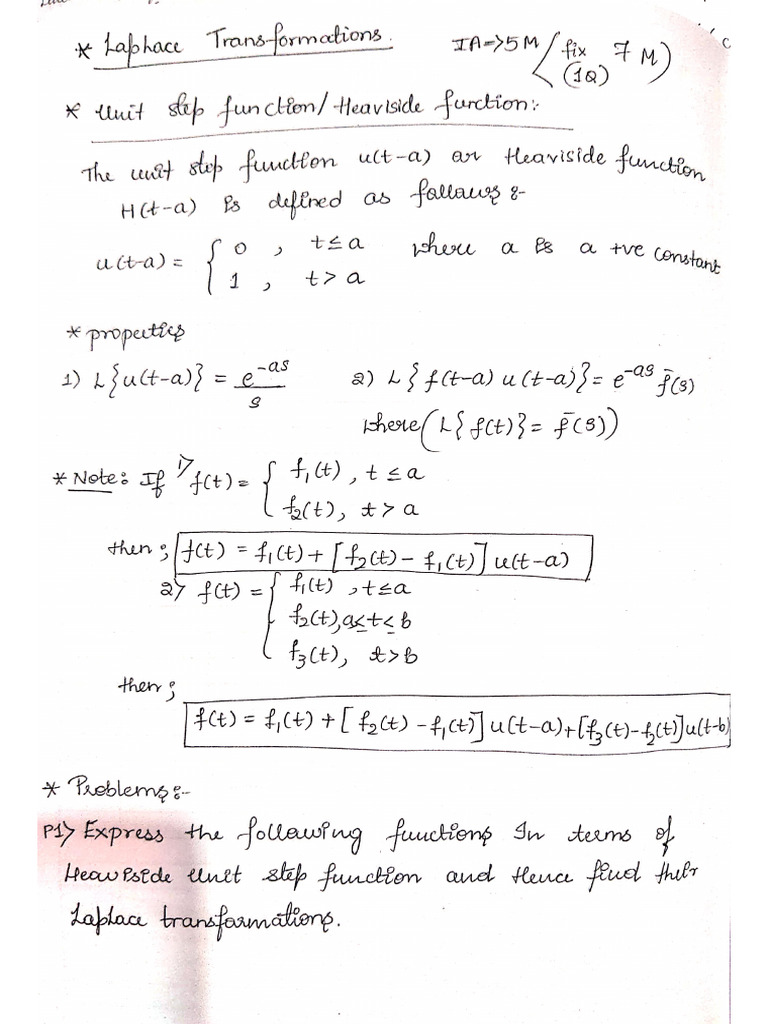 * Laplace Transformations. IA=>5M (fix 7 M)
(1Q)
* Unit step function/Heaviside function:-
The unit step function u(t-a) or Heaviside function
H(t-a) is defined as follows :-
u(t-a) = { 0 , t≤a where a is a +ve constant
1 , t> a
* properties
1) L{u(t-a)} = e^-as / s 2) L{ f(t-a) u(t-a)} = e^-as f̄(s)
where (L{ f(t)} = f̄(s))
* Note: If 1> f(t) = { f₁(t) , t ≤ a
f₂(t), t > a
then ; f(t) = f₁(t) + [f₂(t) - f₁(t)] u(t-a)
2> f(t) = { f₁(t) , t≤a
f₂(t), a≤t≤b
f₃(t), t>b
then ;
f(t) = f₁(t) + [f₂(t) - f₁(t)] u(t-a)+[f₃(t)-f₂(t)]u(t-b)
* Problems :-
P1> Express the following functions In terms of
Heaviside unit step function and Hence find their
Laplace transformations.